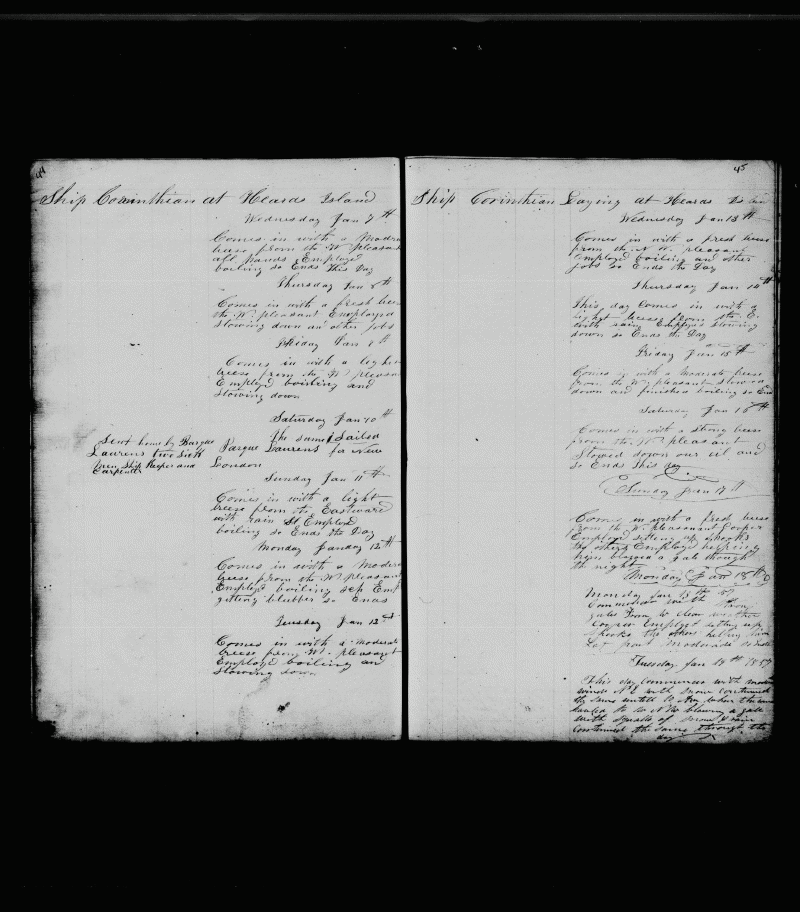 44
Ship Corinthian at Heards Island
Wednesday Jan 7th
Comes in with a Modra
breese from the W pleasant
all hands Employd
boiling so Ends this Day
Thursday Jan 8th
Comes in with a fresh brees
the W. pleasant Employd
Stowing down an other jobs
Friday Jan 8th
Comes in with a light
breese from the W pleasan
Employd boiling and
Stowing down
Saturday Jan 10th
the same Sailed
Sent home by Barque
Barque Laurens for New
Laurens two Sick
London
men Ship Keeper and
Carpenter
Sunday Jan 11th
Comes in with a light
breese from the Eastward
with rain St Employd
boiling so Ends the Day
Monday Janday 12th
Comes in with a Modera
breese from the W pleasant
Employd boiling sep Emp
gitting blubber so Ends
Tuesday Jan 13th
Comes in with a Moderat
breese from W. pleasant
Employd boiling an
Stowing down
45
Ship Corinthian Laying at Heards
Wednesday Jan 13th
Comes in with a fresh brees
from the N W. pleasant
Employd boiling an other
jobs so Ends the Day
Thursday Jan 14th
This day Comes in with a
light breese from the E.
with rain Employd Stowing
down so Ends the Day
Friday Jan 15th
Comes in with a Moderate breese
from the W pleasant Stowed
down and finished boiling so End
Saturday Jan 16th
Comes in with a Strong breese
from the W pleasant
Stowed down our oil and
so Ends this day
Sunday Jan 17th
Comes in with a fresh breese
from the W. pleasanant Cooper
Employd setting up shooks
the others Employd helping
him blowed a gale through
the night
Monday Jan 18th
Monday Jan 18th 57
Commences with strong
gales from W clear weather
Cooper Employd setting up
shooks the others helping him
Lat part moderate
Tuesday Jan 19th 1857
This day Commences with modra
winds N E with snow Continued
the same untill
hauled to the N W blowing a gale
with squalls of snow & rain
Continued the same through the
day